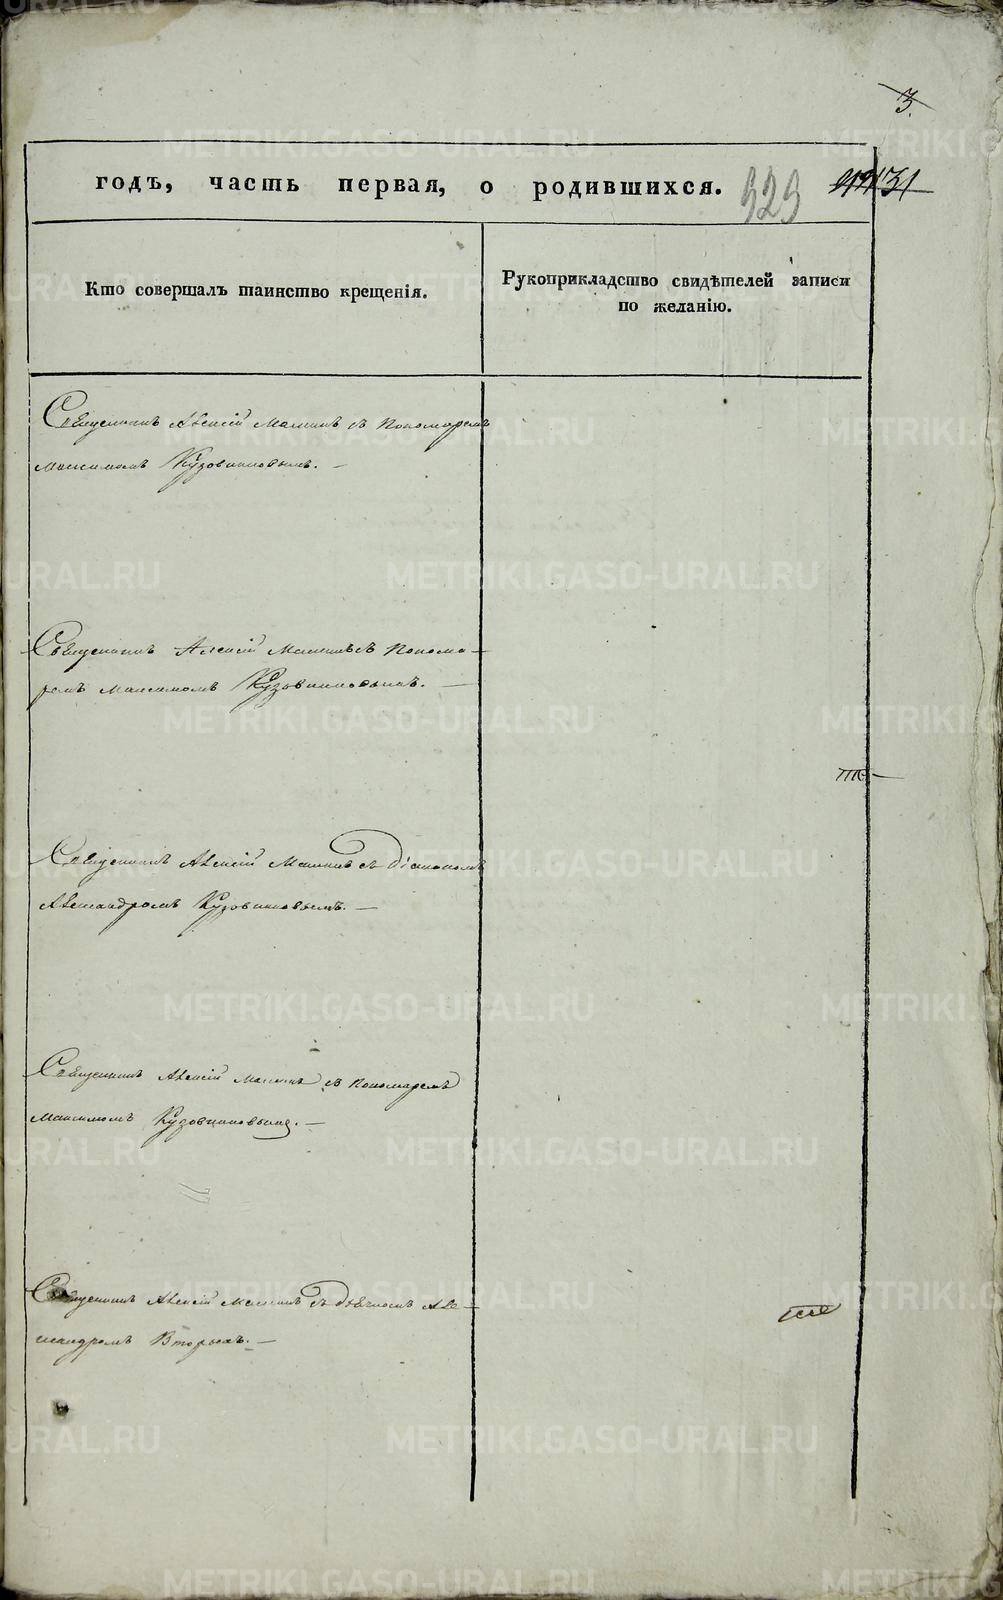 3.
годъ, часть первая, о родившихся.
323
31
Кто совершалъ таинство крещенія.
Рукоприкладство свидѣтелей записи
по желанію.
Священникъ Алексій Маминъ съ Пономаремъ
Максимомъ Кузовниковымъ. —
Священникъ Алексій Маминъ съ Понома-
ремъ Максимомъ Кузовниковымъ. —
Священникъ Алексій Маминъ съ Діакономъ
Александромъ Кузовниковымъ. —
Священникъ Алексій Маминъ съ Пономаремъ
Максимомъ Кузовниковымъ. —
Священникъ Алексій Маминъ съ Дьячкомъ Але-
ксандромъ Вторыхъ. —
METRIKI.GASO-URAL.RU